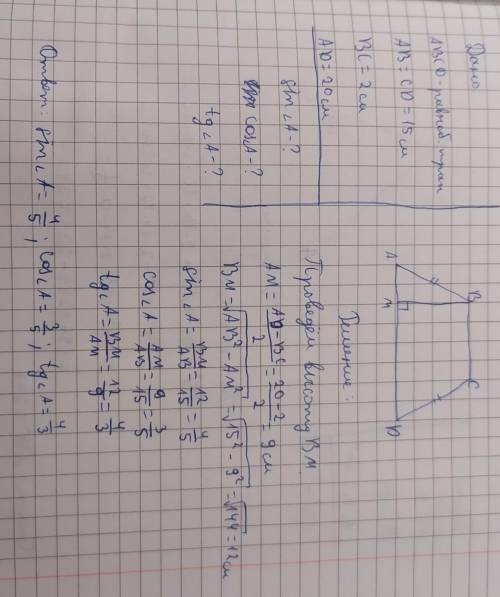 Дано
ABCD-равноб. трап
AB = CD = 15 см
BC = 2 см
AD = 20 см
sin∠A-?
cos∠A-?
tg∠A-?
B C
A M D
Решение:
Проведем высоту BM.
AM = \frac{AD-BC}{2} = \frac{20-2}{2} = 9 см
BM = √AB² - AM² = √15² - 9² = √144 = 12 см
sin∠A = \frac{BM}{AB} = \frac{12}{15} = \frac{4}{5}
cos∠A = \frac{AM}{AB} = \frac{9}{15} = \frac{3}{5}
tg∠A = \frac{BM}{AM} = \frac{12}{9} = \frac{4}{3}
Ответ: sin∠A = \frac{4}{5}; cos∠A = \frac{3}{5}; tg∠A = \frac{4}{3}